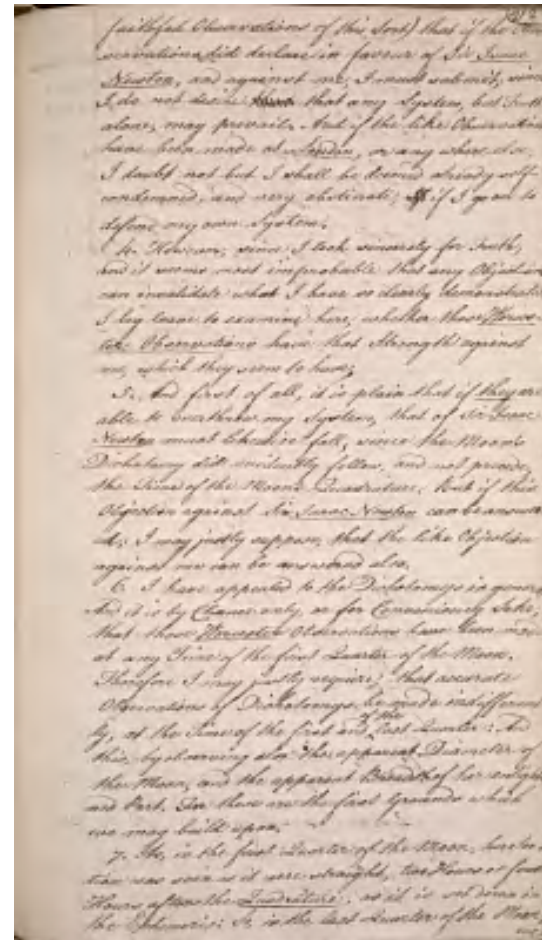 faithful Observations of this Sort) that if the
servations did declare in favour of Sir Isaac
Newton, and against me; I must submit; since
I do not desire that any System, but Truth
alone, may prevail. And if the like Observations
have been made at London, or any where else,
I doubt not but I shall be deemed already self-
condemned, and very obstinate; if I go on to
defend my own System.
4. However, since I seek sincerely for Truth,
and it seems most improbable that any Objection
can invalidate what I have so clearly demonstrated
I beg leave to examine here, whether those
Observations have that Strength against
me, which they seem to have;
5. And first of all, it is plain that if they are
able to overthrow my System, that of Sir Isaac
Newton must likewise fall, since the Moon's
Dichotomy did evidently follow, and not precede,
the Time of the Moon's Quadrature. But if this
Objection against Sir Isaac Newton can be answer
ed; I may justly suppose, that the like Objection
against me can be answered also.
6. I have appealed to the Dichotomys in general
And it is by Chance only, or for Conveniency Sake,
that those Observations have been made
at any Time of the first Quarter of the Moon.
Therefore I may justly require, that accurate
Observations of Dichotomys be made indifferent
ly, at the Time of the first and of the last Quarter: And
this, by observing also the apparent Diameter of
the Moon, and the apparent Breadth of her enlight
ned Part. For these are the first Grounds which
we may build upon.
7. If, in the first Quarter of the Moon, her
tion was seen as it were straight, two Hours or four
Hours after the Quadrature, as it is set down in
the Ephemeris: If, in the last Quarter of the Moon,